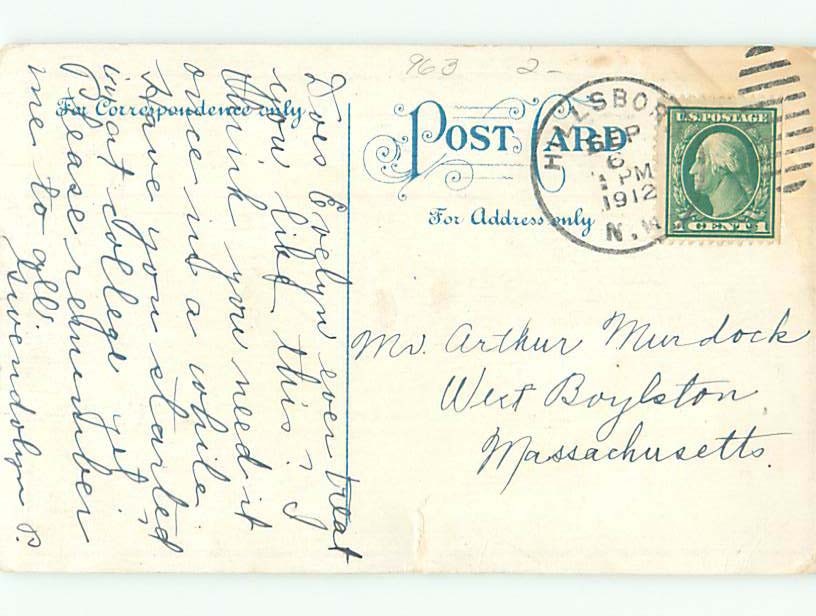 963 2-
For Correspondence only
POST CARD
For Address only
HILLSBORO
SEP
6
1 PM
1912
N.H.
U.S. POSTAGE
1 CENT 1
Mr. Arthur Murdock
West Boylston
Massachusetts.
Does Evelyn ever treat
you like this? I
think you need it
once in a while.
Have you started
in at College yet?
Please remember
me to all.
Gwendolyn P.